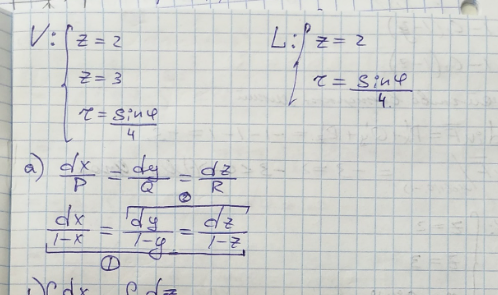 V: { z = 2    L: { z = 2
z = 3    τ = sinφ/4
τ = sinφ/4
a) dx/P = dy/Q = dz/R
②
dx/1-x = dy/1-y = dz/1-z
①